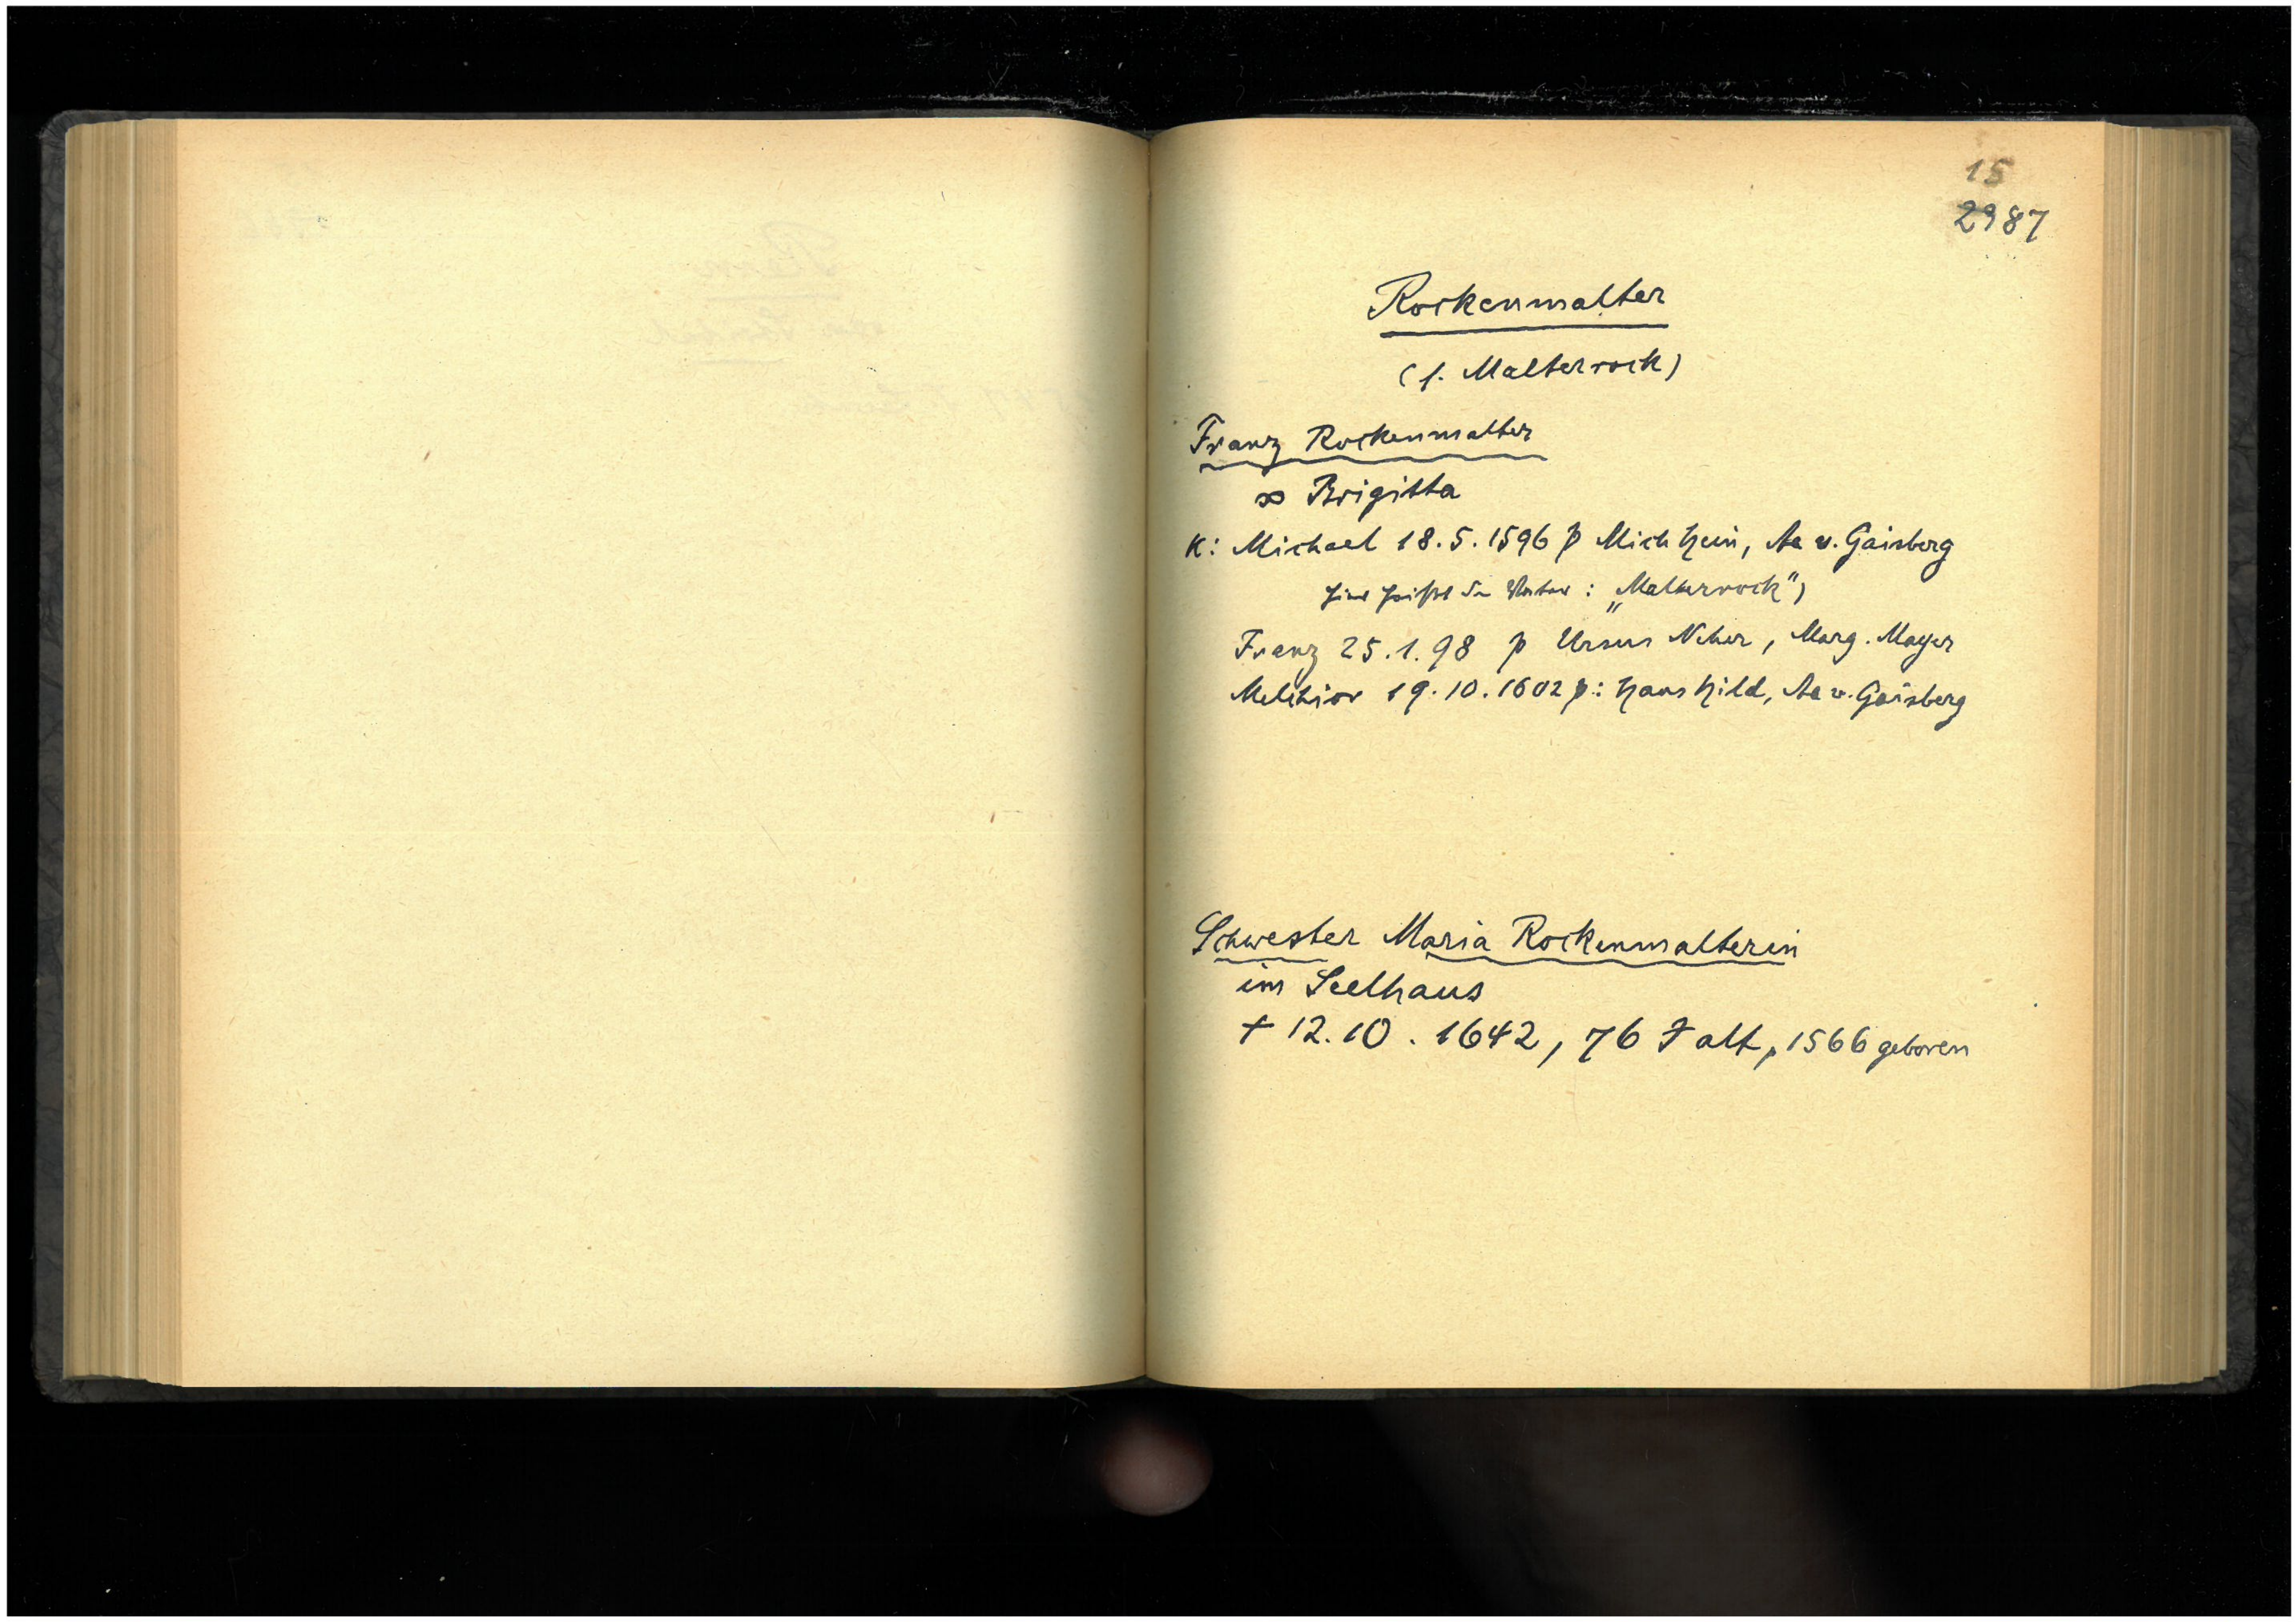 15
2987
Rockenmalter
(s. Malterrock)
Franz Rockenmalter
∞ Brigitta
K: Michael 18.5.1596 p Mich Hein, Aa v. Gaisberg
hier heißt der Vater: „Malterrock")
Franz 25.1.98 p Ursus Neher, Marg. Mayer
Melchior 19.10.1602 p: Hans Hild, Aa v. Gaisberg
Schwester Maria Rockenmalterin
im Seelhaus
† 12.10.1642, 76 J alt, 1566 geboren